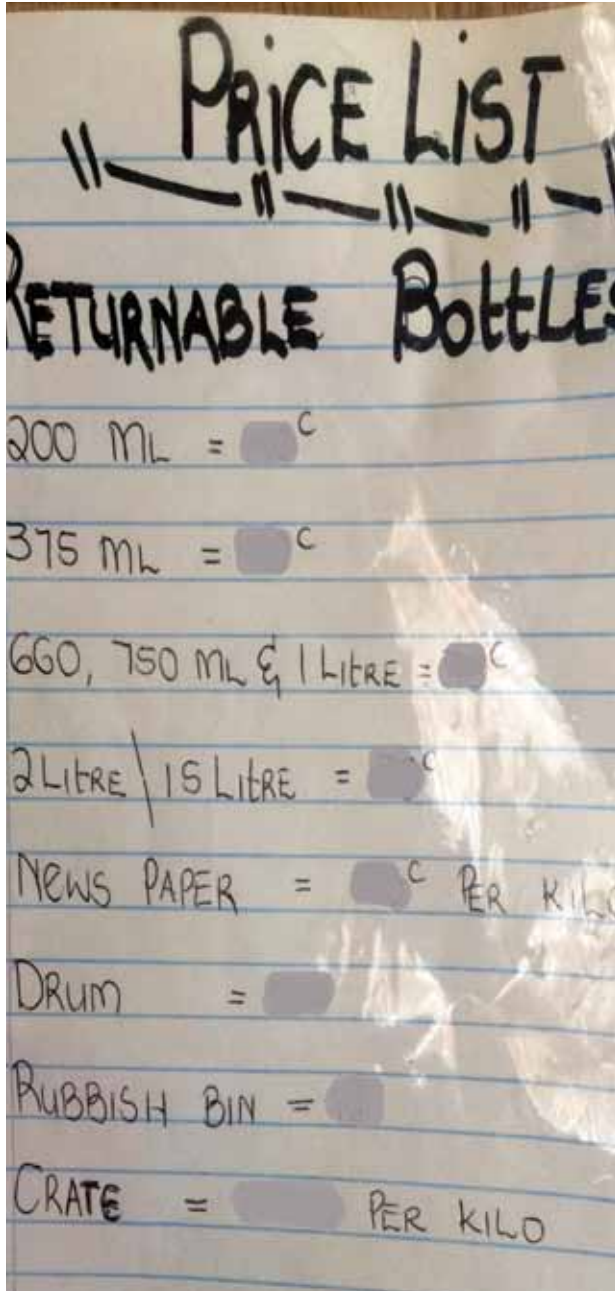 PRICE LIST
RETURNABLE BOTTLES
200 ML = C
375 ML = C
660, 750 ML & 1 LITRE = C
2 LITRE \ 15 LITRE = C
NEWS PAPER = C PER KILO
DRUM =
RUBBISH BIN =
CRATE = PER KILO